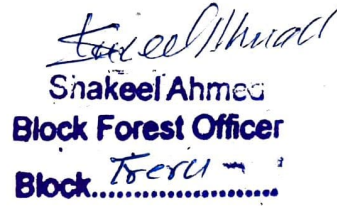 Shakeel Ahmed
Shakeel Ahmed
Block Forest Officer
Block.......................